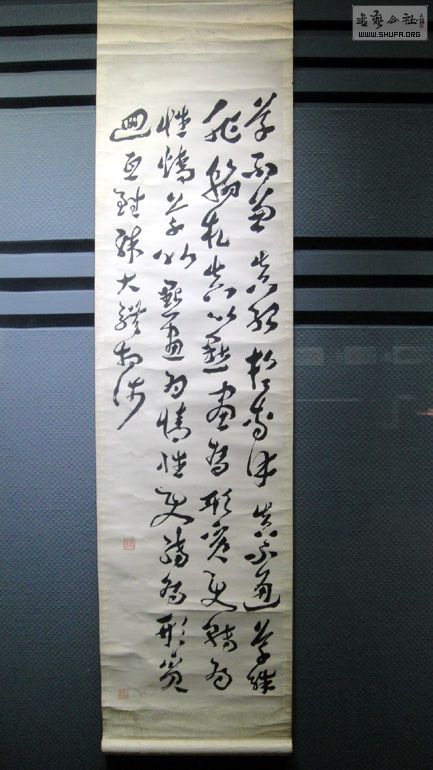 草不兼真殆於專謹真不通草殊
非翰札真以點畫為形質使轉為
性情草以點畫為情性使轉為形質
迴互雖殊大體相涉
書藝公社
WWW.SHUFA.ORG